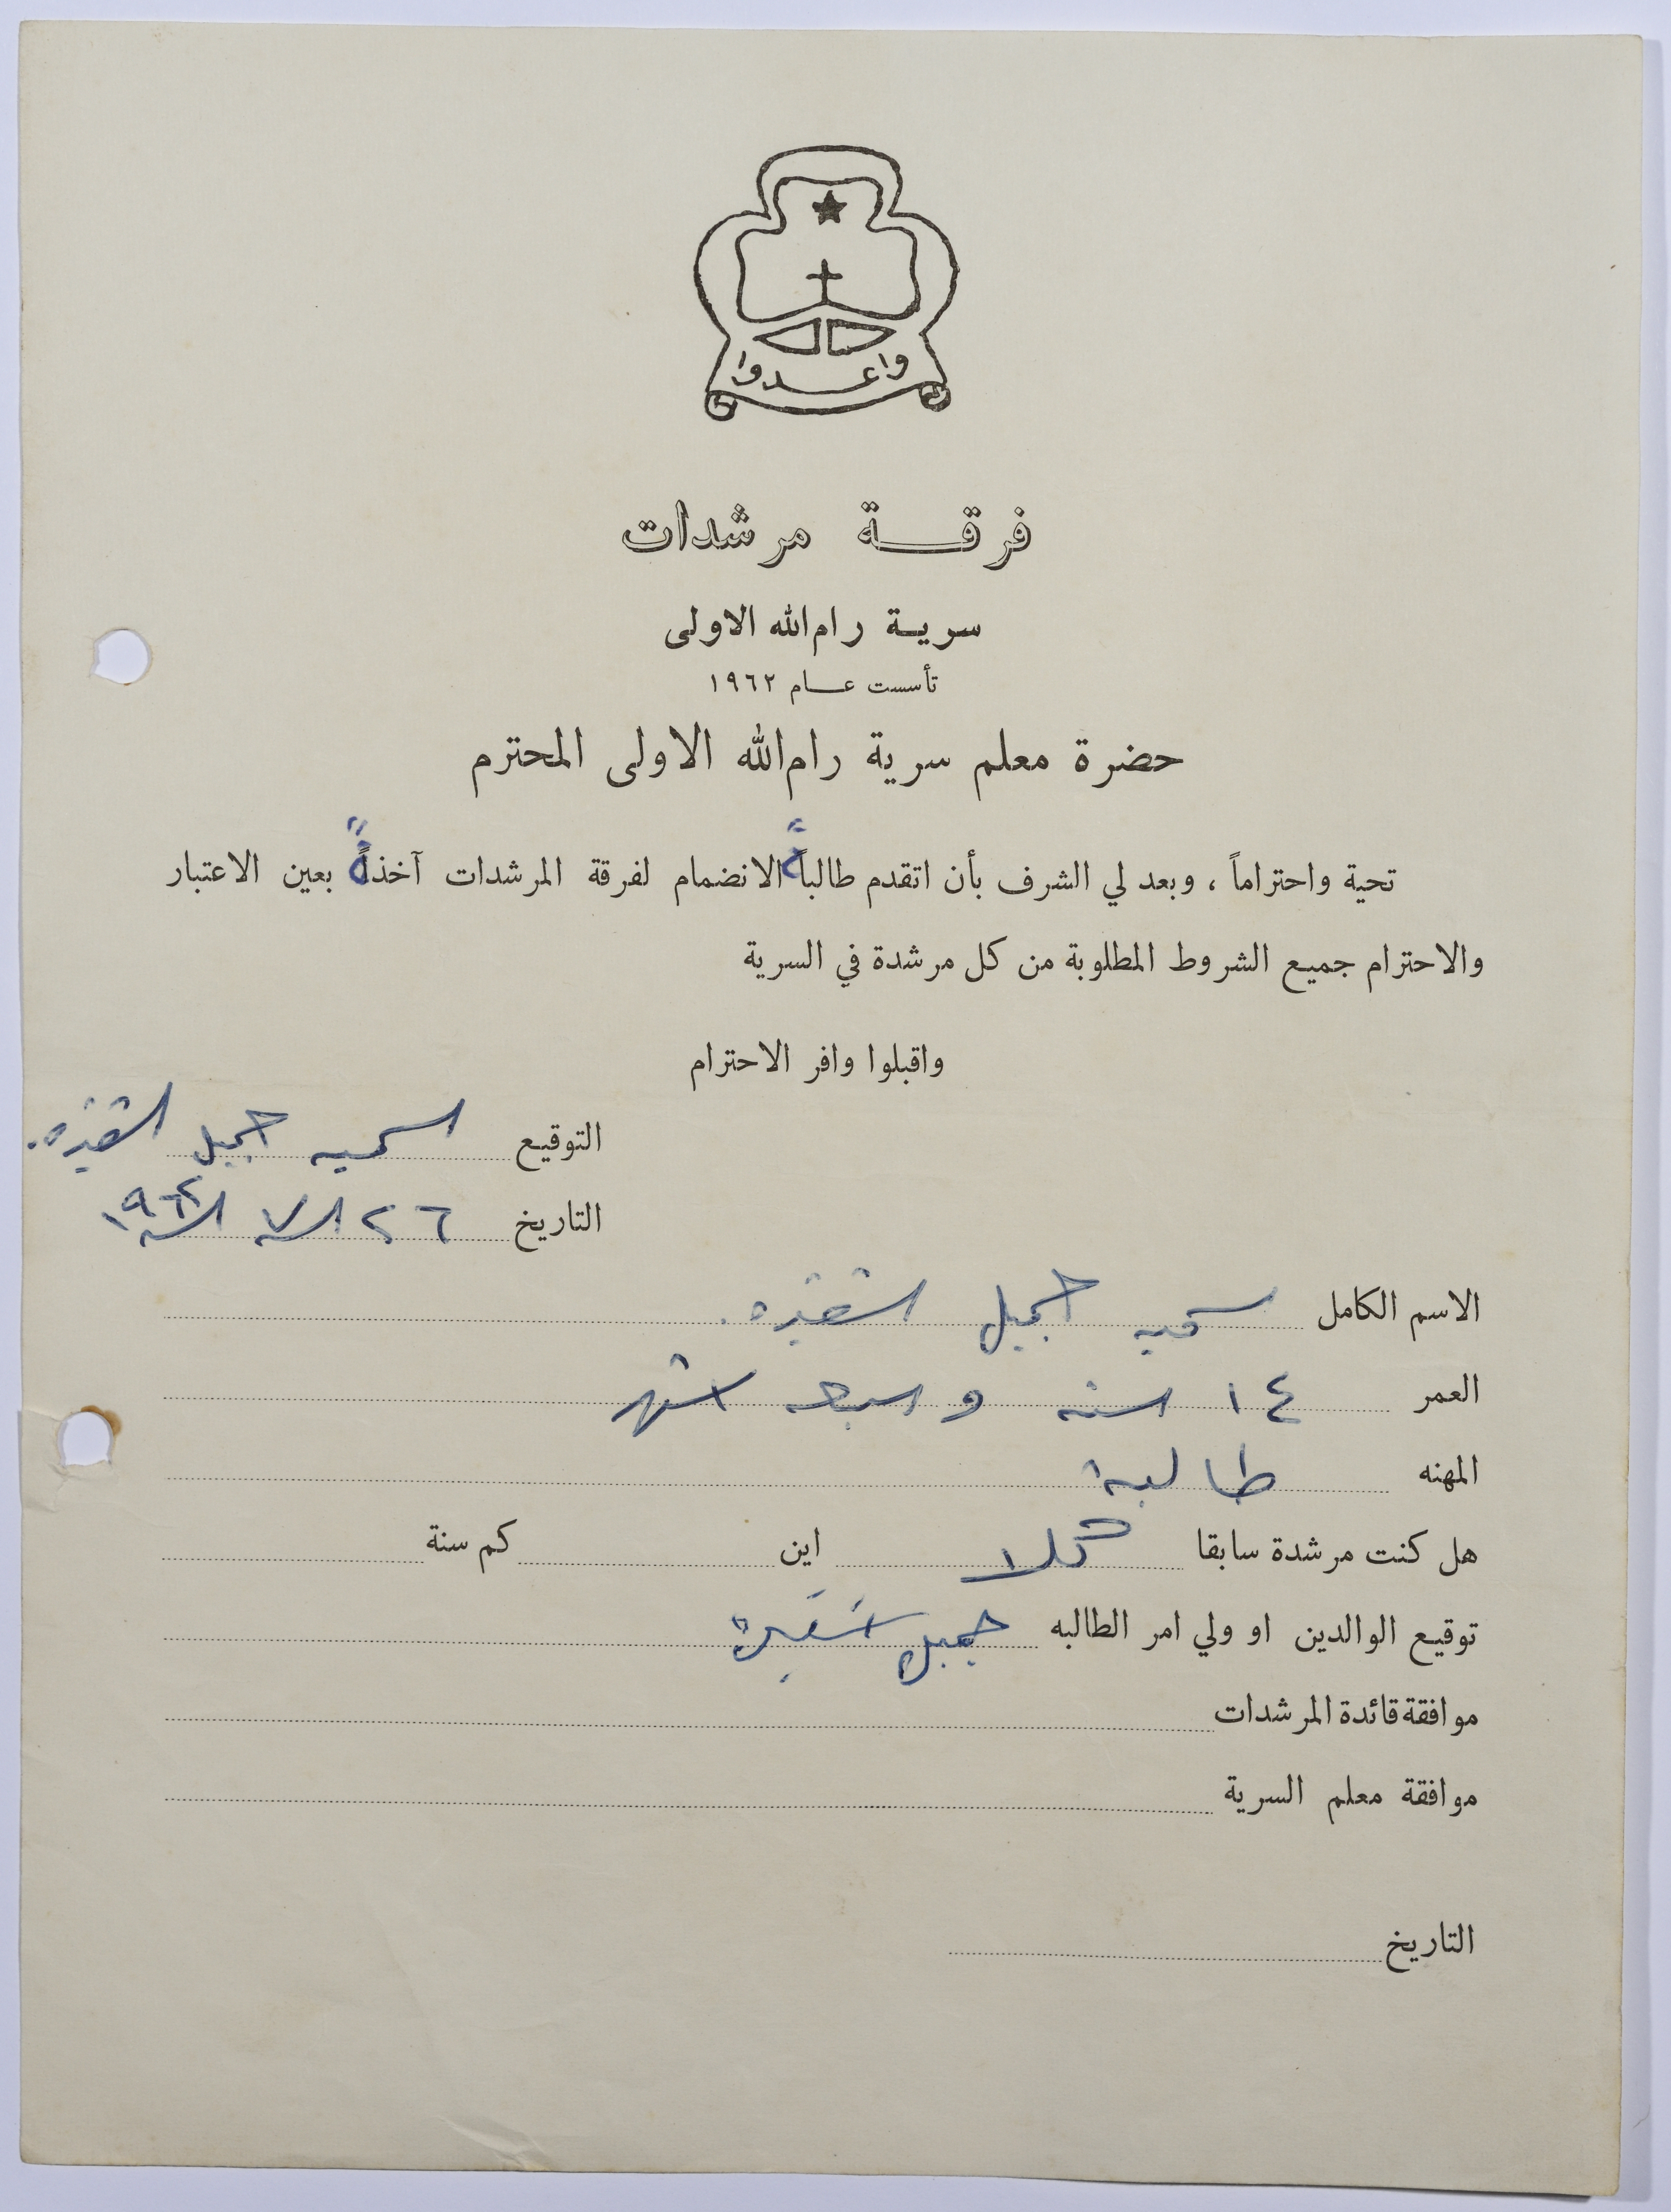 واعدوا
فرقة مرشدات
سرية رام الله الاولى
تأسست عام ١٩٦٢
حضرة معلم سرية رام الله الاولى المحترم
تحية واحتراماً ، وبعد لي الشرف بأن اتقدم طالبةً الانضمام لفرقة المرشدات آخذةً بعين الاعتبار
والاحترام جميع الشروط المطلوبة من كل مرشدة في السرية
واقبلوا وافر الاحترام
التوقيع سميه جميل
التاريخ ٢٦ ٧
الاسم الكامل سميه جميل
العمر ١٤ سنه و سبعه اشهر
المهنه طالبة
هل كنت مرشدة سابقا كلا اين كم سنة
توقيع الوالدين او ولي امر الطالبه جميل
موافقة قائدة المرشدات
موافقة معلم السرية
التاريخ